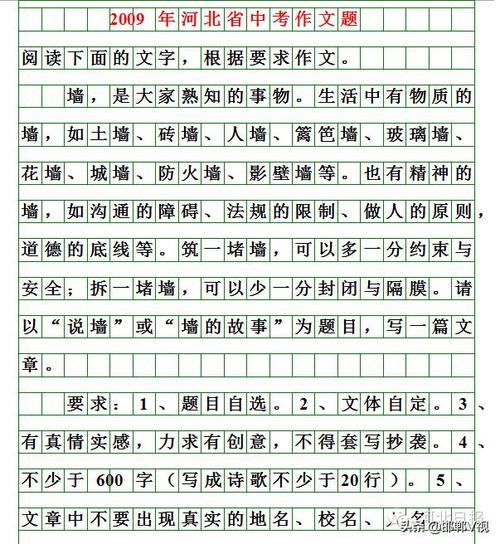 2009 年河北省中考作文题
阅读下面的文字，根据要求作文。
墙，是大家熟知的事物。生活中有物质的
墙，如土墙、砖墙、人墙、篱笆墙、玻璃墙、
花墙、城墙、防火墙、影壁墙等。也有精神的
墙，如沟通的障碍、法规的限制、做人的原则，
道德的底线等。筑一堵墙，可以多一分约束与
安全；拆一堵墙，可以少一分封闭与隔膜。请
以“说墙”或“墙的故事”为题目，写一篇文
章。
要求：1、题目自选。2、文体自定。3、
有真情实感，力求有创意，不得套写抄袭。4、
不少于 600 字（写成诗歌不少于20行）。5、
文章中不要出现真实的地名、校名、人名。
河北日报
头条 @邯郸V视